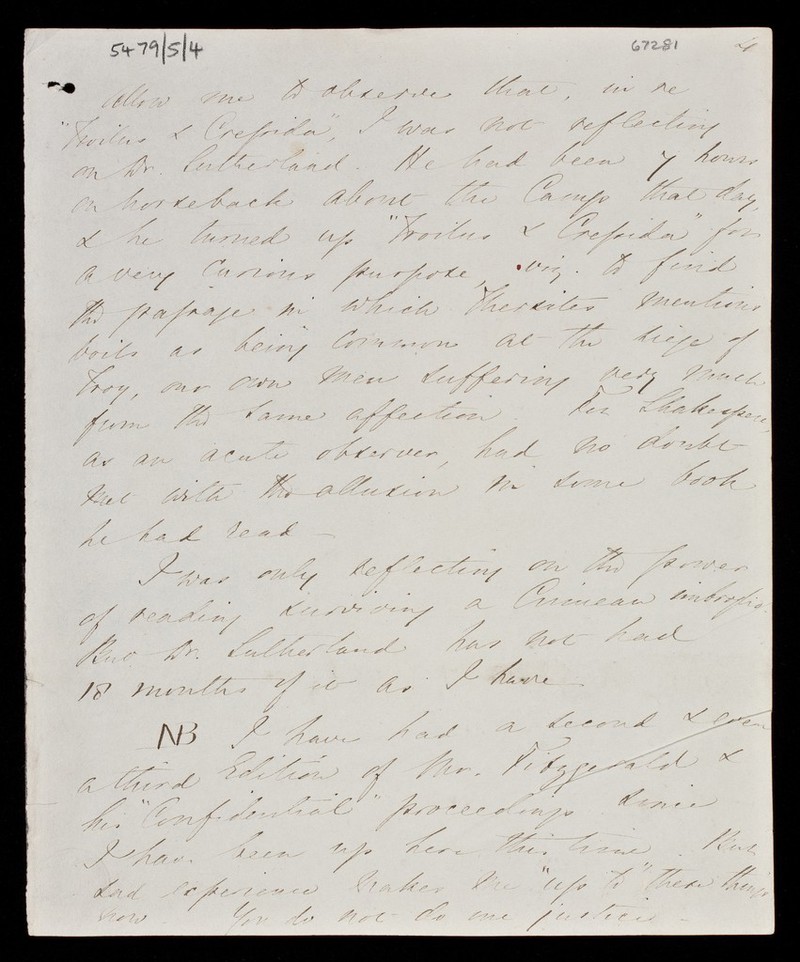 5479/5/4 67281 4
allow me to observe that, in re
"Troilus & Cressida", I was not reflecting
on Dr. Sutherland. He had been 7 hours
on horseback about the Camps that day,
& he turned up "Troilus & Cressida" for
a very curious purpose, viz. to find
the passage in which Thersites mentions
boils as being common at the siege of
Troy, our own men suffering very much
from the same affection. For Shakespere,
as an acute observer, had no doubt
met with the allusion in some book
he had read –
I was only reflecting on the power
of reading surviving a Crimean imbroglio.
But Dr. Sutherland has not had
18 months of it as I have –
NB I have had a second & even
a third Edition of Mr. Fitzgerald &
his "Confidential" proceedings since
I have been up here this time. But
sad experience makes me "up to" these things
now. You do not do me justice –